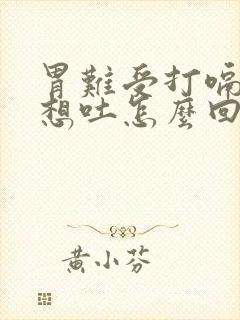 胃難受打嗝
想吐怎麼回
黃小芬